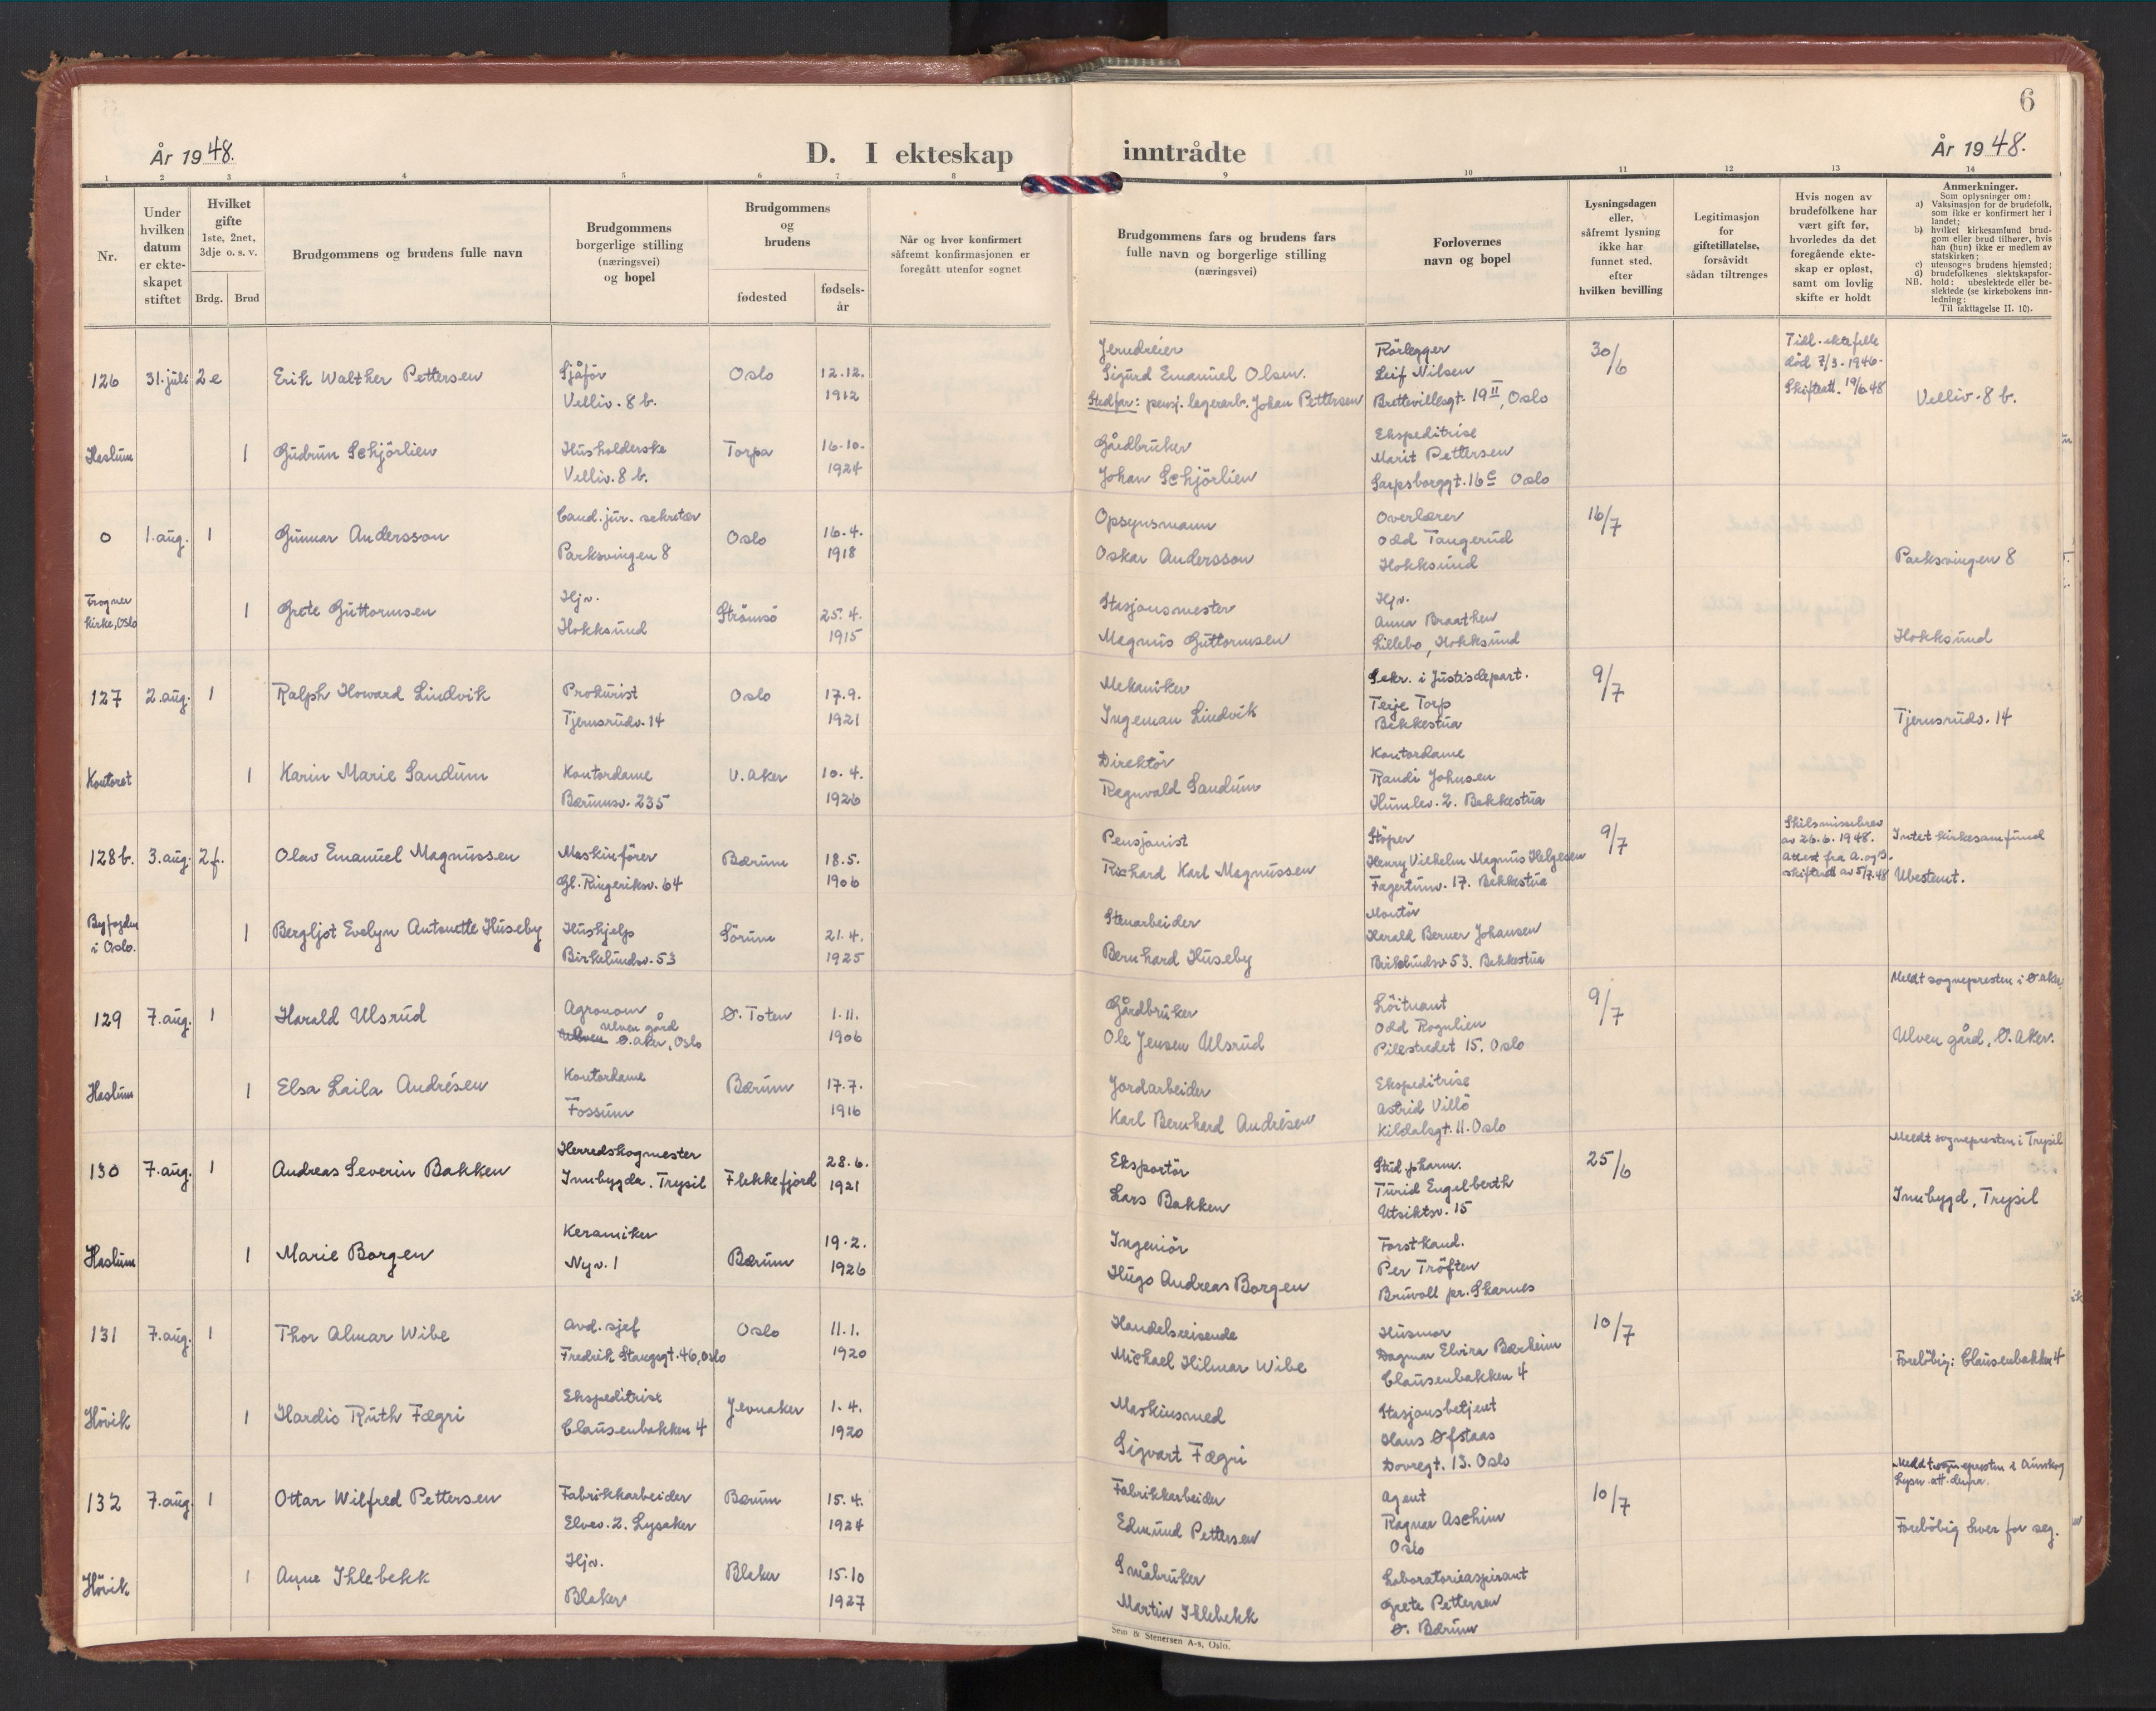 6
År 1948.
D. I ekteskap inntrådte
År 1948.
1 2 3 4 5 6 7 8 9 10 11 12 13 14
Nr.
Under hvilken datum er ekteskapet stiftet
Hvilket gifte
1ste, 2net, 3dje o. s. v.
Brdg. Brud
Brudgommens og brudens fulle navn
Brudgommens borgerlige stilling (næringsvei) og bopel
Brudgommens og brudens
fødested
fødsels-år
Når og hvor konfirmert såfremt konfirmasjonen er foregått utenfor sognet
Brudgommens fars og brudens fars fulle navn og borgerlige stilling (næringsvei)
Forlovernes navn og bopel
Lysningsdagen eller, såfremt lysning ikke har funnet sted, efter hvilken bevilling
Legitimasjon for giftetillatelse, forsåvidt sådan tiltrenges
Hvis nogen av brudefolkene har vært gift før, hvorledes da det foregående ekteskap er opløst, samt om lovlig skifte er holdt
Anmerkninger.
Som oplysninger om:
a) Vaksinasjon for de brudefolk, som ikke er konfirmert her i landet;
b) hvilket kirkesamfund brudgom eller brud tilhører, hvis han (hun) ikke er medlem av statskirken;
c) utensogns brudens hjemsted;
d) brudefolkenes slektskapsforhold: ubeslektede eller beslektede (se kirkebokens innledning:
NB. Til iakttagelse II. 10).
126 31. juli 2 e Erik Walther Pettersen
Sjåför
Velliv. 8 b.
Oslo
12.12.
1912
Jerndreier
Sigurd Emanuel Olsen.
Stedfar: pensj. lagerarb. Johan Pettersen
Rörlegger
Leif Nilsen
Brettevillesgt. 19 II, Oslo
30/6
Tidl. ektefelle
död 7/3-1946-
Skifteatt. 19/6-48
Velliv. 8 b.
Haslum 1 Gudrun Schjörlien
Husholderske
Velliv. 8 b.
Torpa
16-10-
1924
Gårdbruker
Johan Schjörlien
Ekspeditrise
Marit Pettersen
Sarpsborggt. 16 c Oslo
0 1. aug. 1 Gunnar Andersson
Cand. jur. sekretær
Parksvingen 8
Oslo
16.4.
1918
Opsynsmann
Oskar Andersson
Overlærer
Odd Tangerud
Hokksund
16/7
Parksvingen 8
Frogner kirke, Oslo 1 Grete Guttormsen
Hjv.
Hokksund
Strömsö
25.4.
1915
Stasjonsmester
Magnus Guttormsen
Hjv.
Anna Braathen
Lillebo, Hokksund
Hokksund
127 2. aug. 1 Ralph Howard Lindvik
Prokurist
Tjernsrudv. 14
Oslo
17.9.
1921
Mekaniker
Ingeman Lindvik
Sekr. i Justisdepart.
Terje Torp
Bekkestua
9/7
Tjernsrudv. 14
Kontoret 1 Karin Marie Sandum
Kontordame
Bærumsv. 235
V. Aker
10.4.
1926
Direktör
Ragnvald Sandum
Kontordame
Randi Johnsen
Humlev. 2. Bekkestua
128 b. 3. aug. 2 f. Olav Emanuel Magnussen
Maskinförer
Gl. Ringeriksv. 64
Bærum
18.5.
1906
Pensjonist
Richard Karl Magnussen
Stöper
Henry Vilhelm Magnus Helgesen
Fagertunv. 17. Bekkestua
9/7
Skilsmissebrev
av 26.6.1948.
Attest fra A. og B.
skifterett av 5/7.48
Intet kirkesamfund
Ubestemt.
Byfogden i Oslo. 1 Bergljot Evelyn Antonette Huseby
Hushjelp
Birkelundsv. 53
Sörum
21.4.
1925
Stenarbeider
Bernhard Huseby
Montör
Harald Berner Johansen
Birkelundsv 53. Bekkestua
129 7. aug. 1 Harald Ulsrud
Agronom
Ulven gård
Ö. Aker, Oslo
Ø. Toten
1.11.
1906
Gårdbruker
Ole Jensen Ulsrud
Löitnant
Odd Rognlien
Pilestredet 15. Oslo
9/7
Meldt sognepresten i Ø. Aker
Ulven gård, Ö. Aker.
Haslum 1 Elsa Laila Andrésen
Kontordame
Fossum
Bærum
17.7.
1916
Jordarbeider
Karl Bernhard Andrésen
Ekspeditrise
Astrid Villö
Kildalsgt. 11. Oslo
130 7. aug. 1 Andreas Severin Bakken
Herredskogmester
Innbygda. Trysil
Flekkefjord
28.6.
1921
Eksportör
Lars Bakken
Stud. pharm.
Turid Engelberth
Utsiktsv. 15
25/6
Meldt sognepresten i Trysil
Innbygd, Trysil
Haslum 1 Marie Borgen
Keramiker
Nyv. 1
Bærum
19.2.
1926
Ingeniör
Hugo Andreas Borgen
Forstkand.
Per Tröften
Bruvoll pr. Skarnes
131 7. aug. 1 Thor Almar Wibe
Avd. sjef
Fredrik Stangsgt. 46, Oslo
Oslo
11.1.
1920
Handelsreisende
Michael Hilmar Wibe
Husmor
Dagmar Elvira Bærheim
Clausenbakken 4
10/7
Forelöbig: Clausenbakken 4
Hövik 1 Hardis Ruth Fægri
Ekspeditrise
Clausenbakken 4
Jevnaker
1.4.
1920
Maskinsmed
Sigvart Fægri
Stasjonsbetjent
Hans Øfstaas
Dovregt. 13. Oslo
132 7. aug. 1 Ottar Wilfred Pettersen
Fabrikkarbeider
Elvev. 2. Lysaker
Bærum
15.4.
1924
Fabrikkarbeider
Edmund Pettersen
Agent
Ragnar Aschim
Oslo
10/7
Meldt sognepresten i Aurskog
Lysn. att. derfr.
Forelöbig hver for seg.
Hövik 1 Anne Ihlebekk
Hjv.
Blaker
Blaker
15.10
1927
Småbruker
Martin Ihlebekk
Laboratorieaspirant
Grete Pettersen
Ø. Bærum
Sem & Stenersen A-s, Oslo.